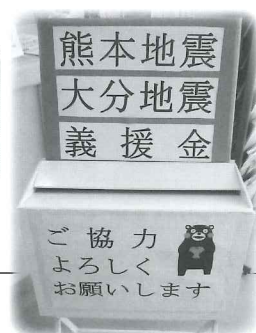 熊本地震
大分地震
義援金
ご協力
よろしく
お願いします